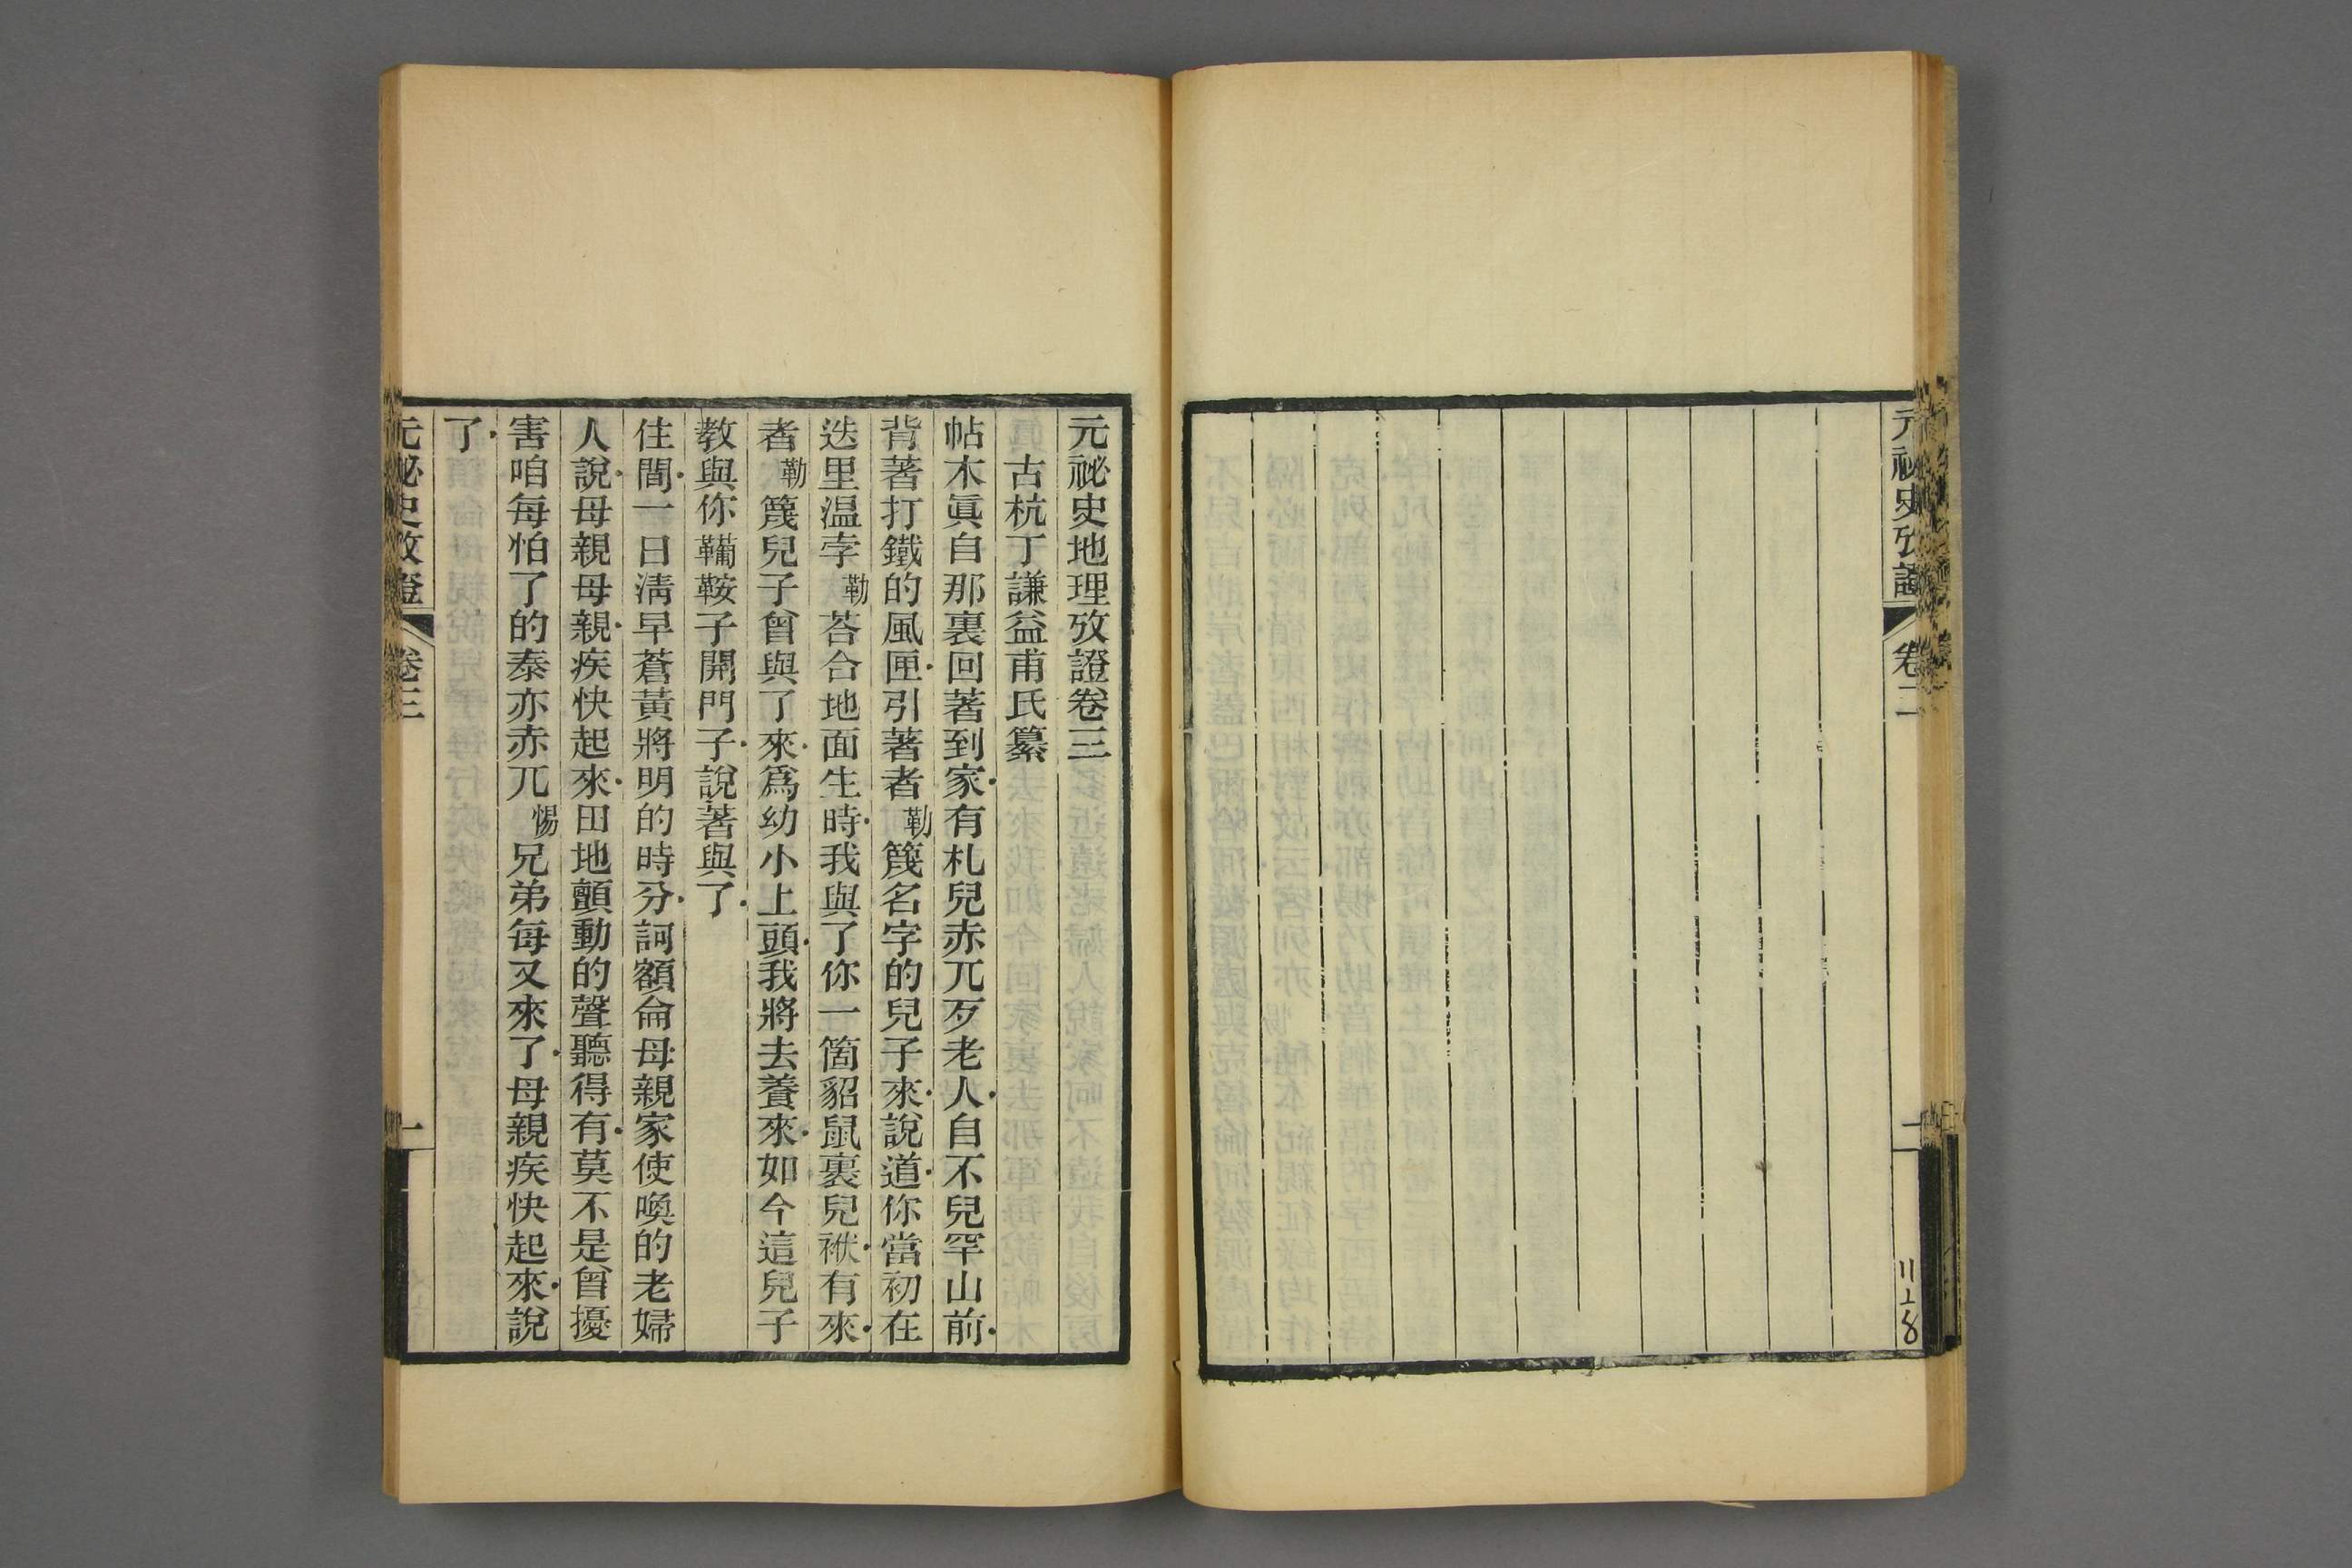 元祕史攷證
卷二
元祕史地理攷證卷三
古杭丁謙益甫氏纂
帖木眞自那裏回著到家有札兒赤兀歹老人自不兒罕山前
背著打鐵的風匣引著者勒篾名字的兒子來說道你當初在
迭里温孛勒荅合地面生時我與了你一箇貂鼠裏兒袱有來
者勒篾兒子曾與了來爲幼小上頭我將去養來如今這兒子
教與你鞴鞍子開門子說著與了
住間一日淸早蒼黃將明的時分訶額侖母親家使喚的老婦
人說母親母親疾快起來田地顫動的聲聽得有莫不是曾擾
害咱每怕了的泰亦赤兀惕兄弟每又來了母親疾快起來說
了
元祕史攷證
卷三
一